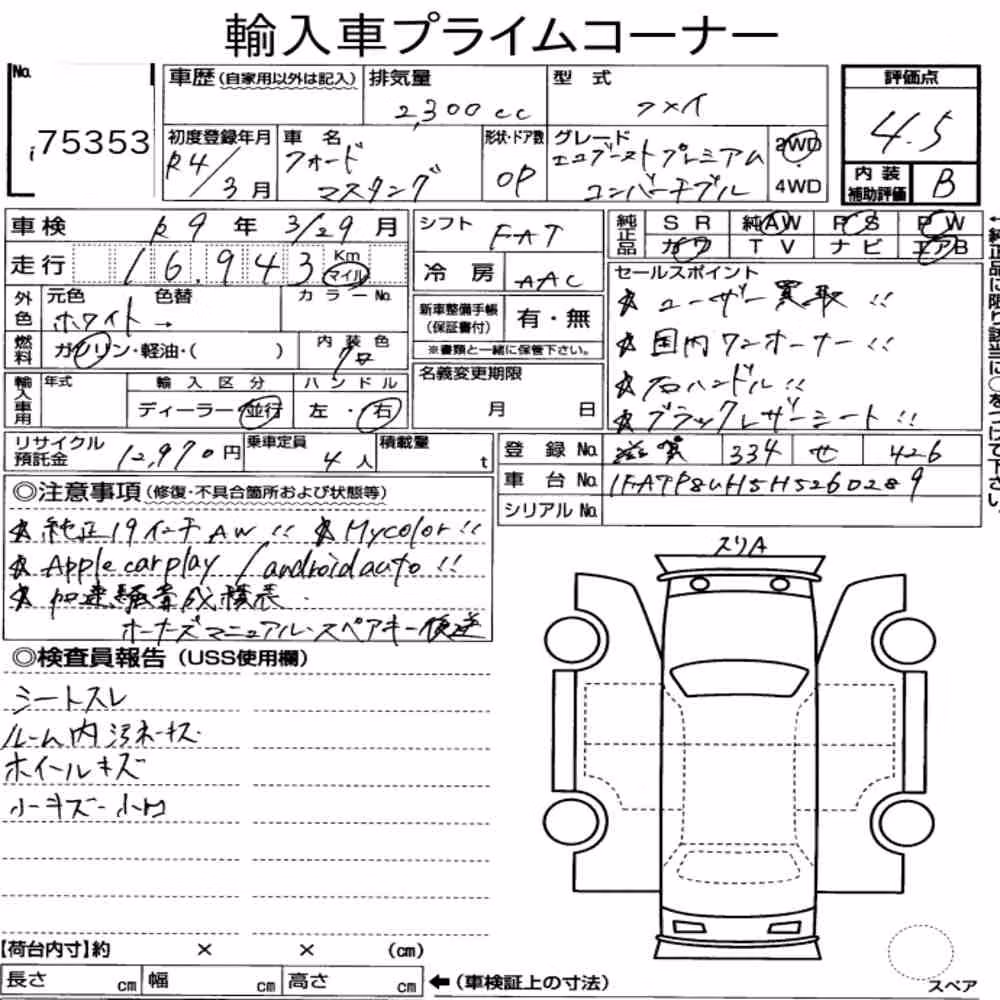 輸入車プライムコーナー
No.
i 75353
車歴 (自家用以外は記入) 排気量 2,300cc 型式 フメイ
評価点 4.5
初度登録年月 R4/3月 車名 フォード マスタング 形状・ドア数 OP グレード エコブーストプレミアム コンバーチブル 2WD・4WD
内装補助評価 B
車検 R9年3/29月 シフト FAT 純正品 SR 純AW PS PW
走行 16,943 Km マイル 冷房 AAC カワ TV ナビ エアB
←純正品に限り該当に○をつけて下さい。
外色 元色 ホワイト 色替 → カラーNo.
新車整備手帳(保証書付) 有・無
※書類と一緒に保管下さい。
セールスポイント
☆ユーザー買取!!
☆国内ワンオーナー!!
☆右ハンドル!!
☆ブラックレザーシート!!
燃料 ガソリン・軽油・( ) 内装色 クロ
名義変更期限 月 日
輸入車用 年式 輸入区分 ディーラー・並行 ハンドル 左・右
リサイクル預託金 12,970円 乗車定員 4人 積載量 t
登録No. 滋賀 334 せ 426
車台No. 1FATP8UH5H5260289
シリアルNo.
◎注意事項(修復・不具合箇所および状態等)
☆純正19インチAW!! ☆Mycolor!!
☆Apple carplay/androidauto!!
☆加速騒音成績表.
オーナーズマニュアル・スペアキー後送
◎検査員報告(USS使用欄)
シートスレ
ルーム内汚れ・キズ
ホイールキズ
小キズ・小凹
スリA
【荷台内寸】約 × × (cm)
長さ cm 幅 cm 高さ cm ←(車検証上の寸法)
スペア